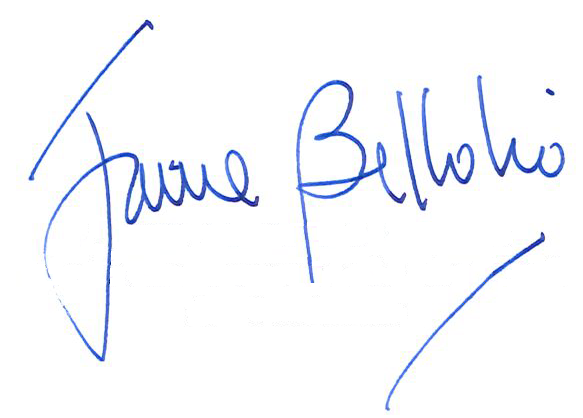 Jaime Bellolio